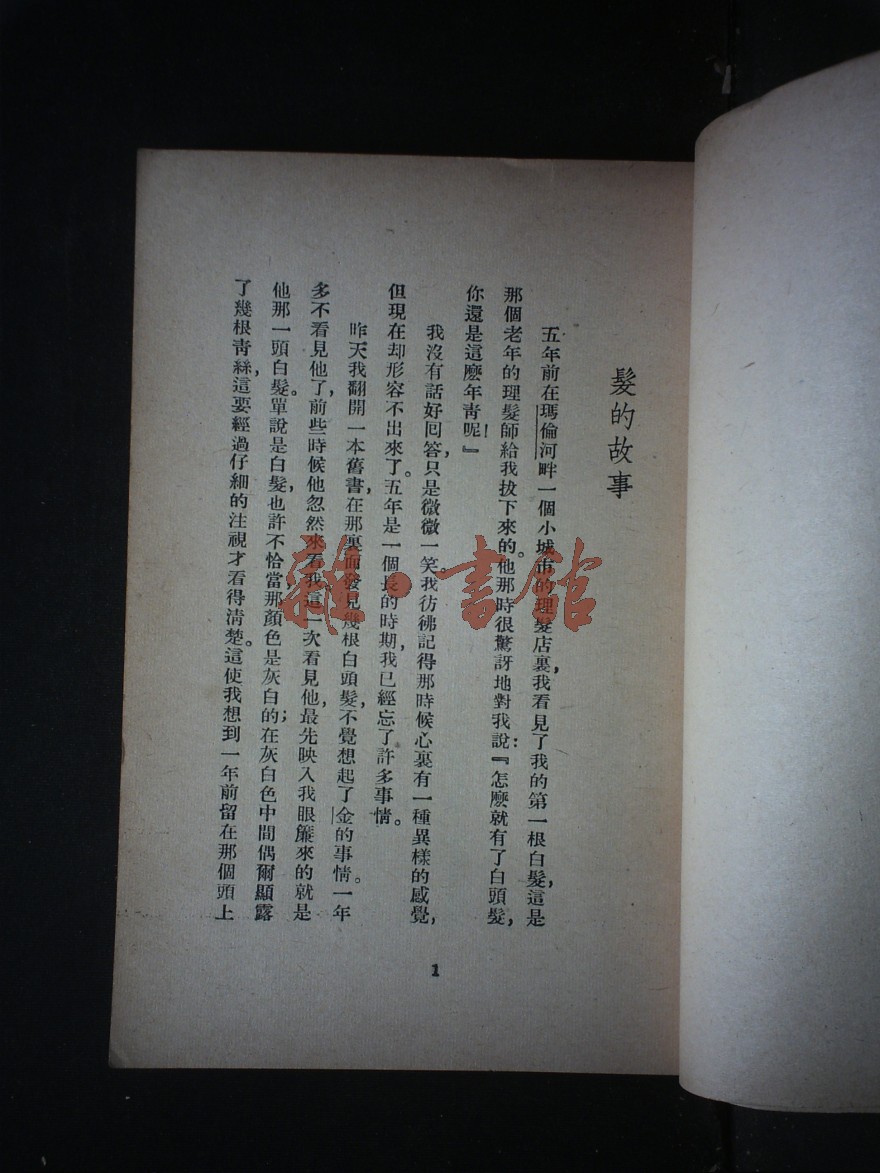 髮的故事
五年前在瑪倫河畔一個小城市的理髮店裏，我看見了我的第一根白髮，這是
那個老年的理髮師給我拔下來的。他那時很驚訝地對我說：『怎麽就有了白頭髮，
你還是這麽年青呢！』
我沒有話好回答，只是微微一笑。我彷彿記得那時候心裏有一種異樣的感覺，
但現在却形容不出來了。五年是一個長的時期，我已經忘了許多事情。
昨天我翻開一本舊書，在那裏面發見幾根白頭髮，不覺想起了金的事情。一年
多不看見他了，前些時候他忽然來看我。這一次看見他，最先映入我眼簾來的就是
他那一頭白髮。單說是白髮，也許不恰當，那顏色是灰白的；在灰白色中間偶爾顯露
了幾根青絲，這要經過仔細的注視才看得清楚。這使我想到一年前留在那個頭上
1
雜·書館